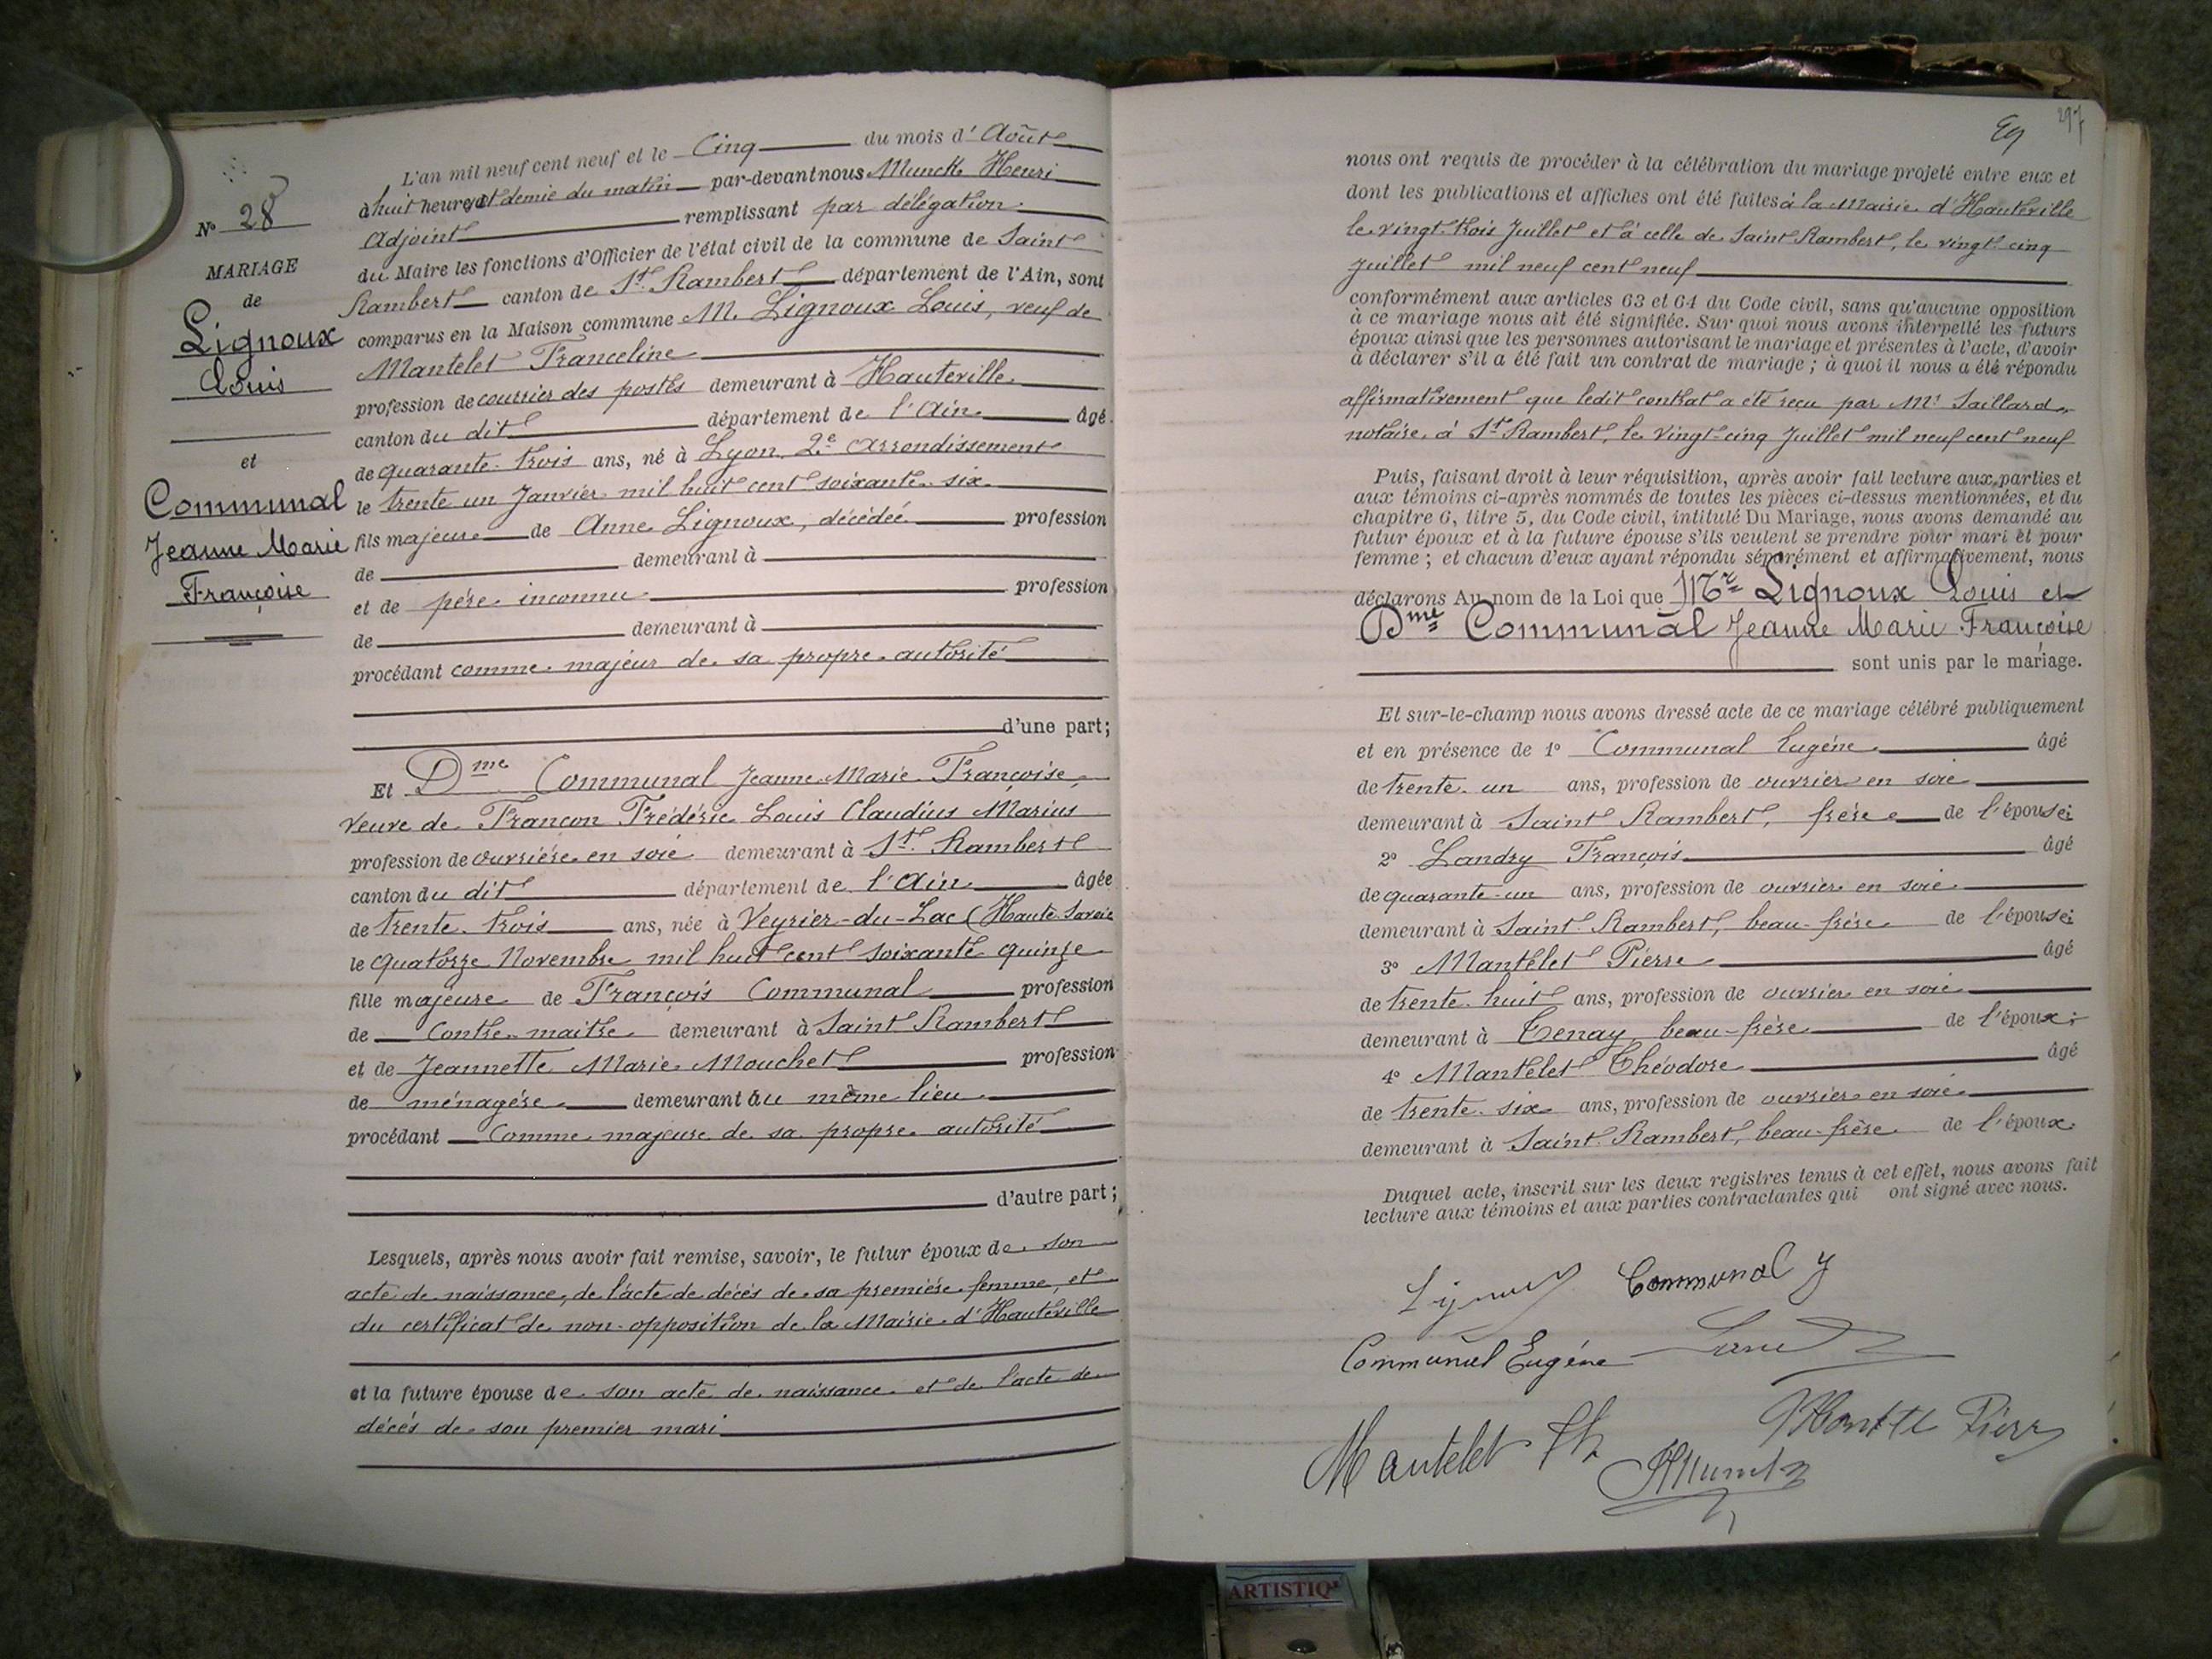 N° 28
MARIAGE
de
Lignoux
Louis
et
Communal
Jeanne Marie
Françoise
L'an mil neuf cent neuf et le Cinq du mois d'Août
à huit heures et demie du matin par-devant nous Munck Henri
Adjoint remplissant par délégation
du Maire les fonctions d'Officier de l'état civil de la commune de Saint
Rambert canton de St. Rambert département de l'Ain, sont
comparus en la Maison commune M. Lignoux Louis, veuf de
Mantelet Franceline
profession de courrier des postes demeurant à Hauteville
canton du dit département de l'Ain âgé
de quarante-trois ans, né à Lyon 2e Arrondissement
le trente un Janvier mil huit cent soixante-six
fils majeur de Anne Lignoux, décédée profession
de demeurant à
et de père inconnu profession
de demeurant à
procédant comme majeur de sa propre autorité
d'une part;
Et Dme Communal Jeanne Marie Françoise,
veuve de Françon Frédéric Louis Claudius Marius
profession de ouvrière en soie demeurant à St. Rambert
canton du dit département de l'Ain âgée
de trente-trois ans, née à Veyrier-du-Lac (Haute Savoie
le quatorze Novembre mil huit cent soixante quinze
fille majeure de François Communal profession
de Contre-maitre demeurant à Saint Rambert
et de Jeannette Marie Mouchet profession
de ménagère demeurant au même lieu
procédant Comme majeure de sa propre autorité
d'autre part;
Lesquels, après nous avoir fait remise, savoir, le futur époux de son
acte de naissance, de l'acte de décès de sa première femme, et
du certificat de non-opposition de la Mairie d'Hauteville
et la future épouse de son acte de naissance et de l'acte de
décès de son premier mari
297
nous ont requis de procéder à la célébration du mariage projeté entre eux et
dont les publications et affiches ont été faites à la Mairie d'Hauteville
le vingt-trois Juillet et à celle de Saint Rambert, le vingt-cinq
Juillet mil neuf cent neuf
conformément aux articles 63 et 64 du Code civil, sans qu'aucune opposition
à ce mariage nous ait été signifiée. Sur quoi nous avons interpellé les futurs
époux ainsi que les personnes autorisant le mariage et présentes à l'acte, d'avoir
à déclarer s'il a été fait un contrat de mariage; à quoi il nous a été répondu
affirmativement que ledit contrat a été reçu par Me Saillard,
notaire, à St Rambert, le vingt-cinq Juillet mil neuf cent neuf
Puis, faisant droit à leur réquisition, après avoir fait lecture aux parties et
aux témoins ci-après nommés de toutes les pièces ci-dessus mentionnées, et du
chapitre 6, titre 5, du Code civil, intitulé Du Mariage, nous avons demandé au
futur époux et à la future épouse s'ils veulent se prendre pour mari et pour
femme; et chacun d'eux ayant répondu séparément et affirmativement, nous
déclarons Au nom de la Loi que Mr Lignoux Louis et
Dme Communal Jeanne Marie Françoise
sont unis par le mariage.
Et sur-le-champ nous avons dressé acte de ce mariage célébré publiquement
et en présence de 1° Communal Eugène âgé
de trente-un ans, profession de ouvrier en soie
demeurant à Saint Rambert, frère de l'épouse;
2° Landry François âgé
de quarante-un ans, profession de ouvrier en soie
demeurant à Saint Rambert, beau-frère de l'épouse;
3° Mantelet Pierre âgé
de trente-huit ans, profession de ouvrier en soie
demeurant à Tenay, beau-frère de l'époux;
4° Mantelet Théodore âgé
de trente-six ans, profession de ouvrier en soie
demeurant à Saint-Rambert, beau-frère de l'époux.
Duquel acte, inscrit sur les deux registres tenus à cet effet, nous avons fait
lecture aux témoins et aux parties contractantes qui ont signé avec nous.
Lignoux Communal J
Communal Eugène
Mantelet Th
ARTISTIQ